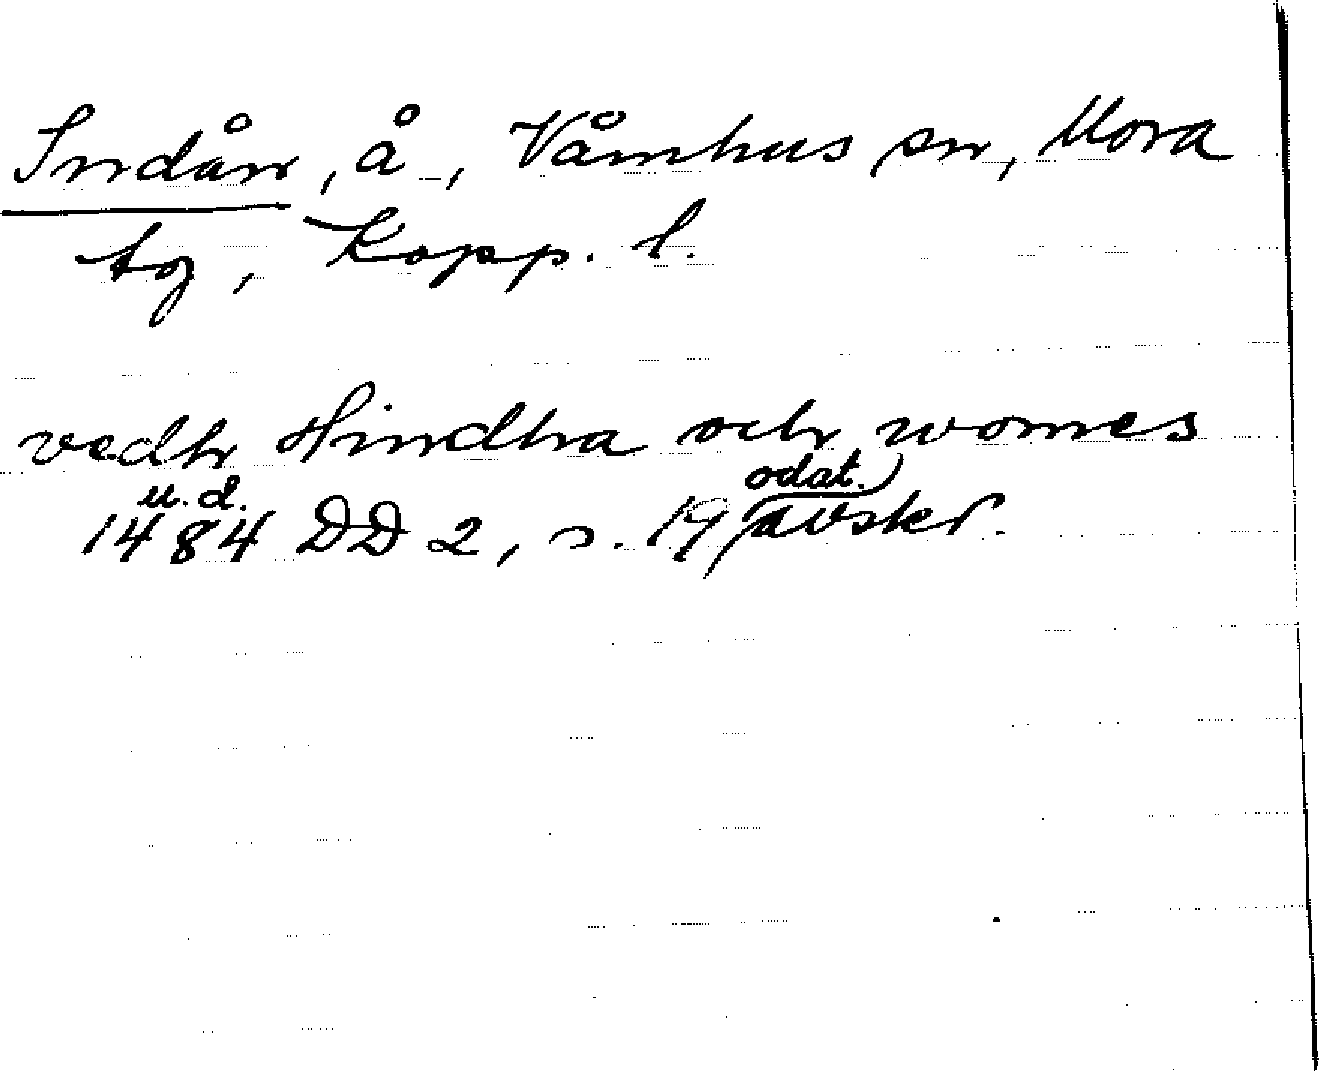 Indån, å, Våmhus sn, Mora
tg, Kopp. l.
vedh Hindha och womes
u.d. odat.
1484 DD 2, s. 19 avskr.